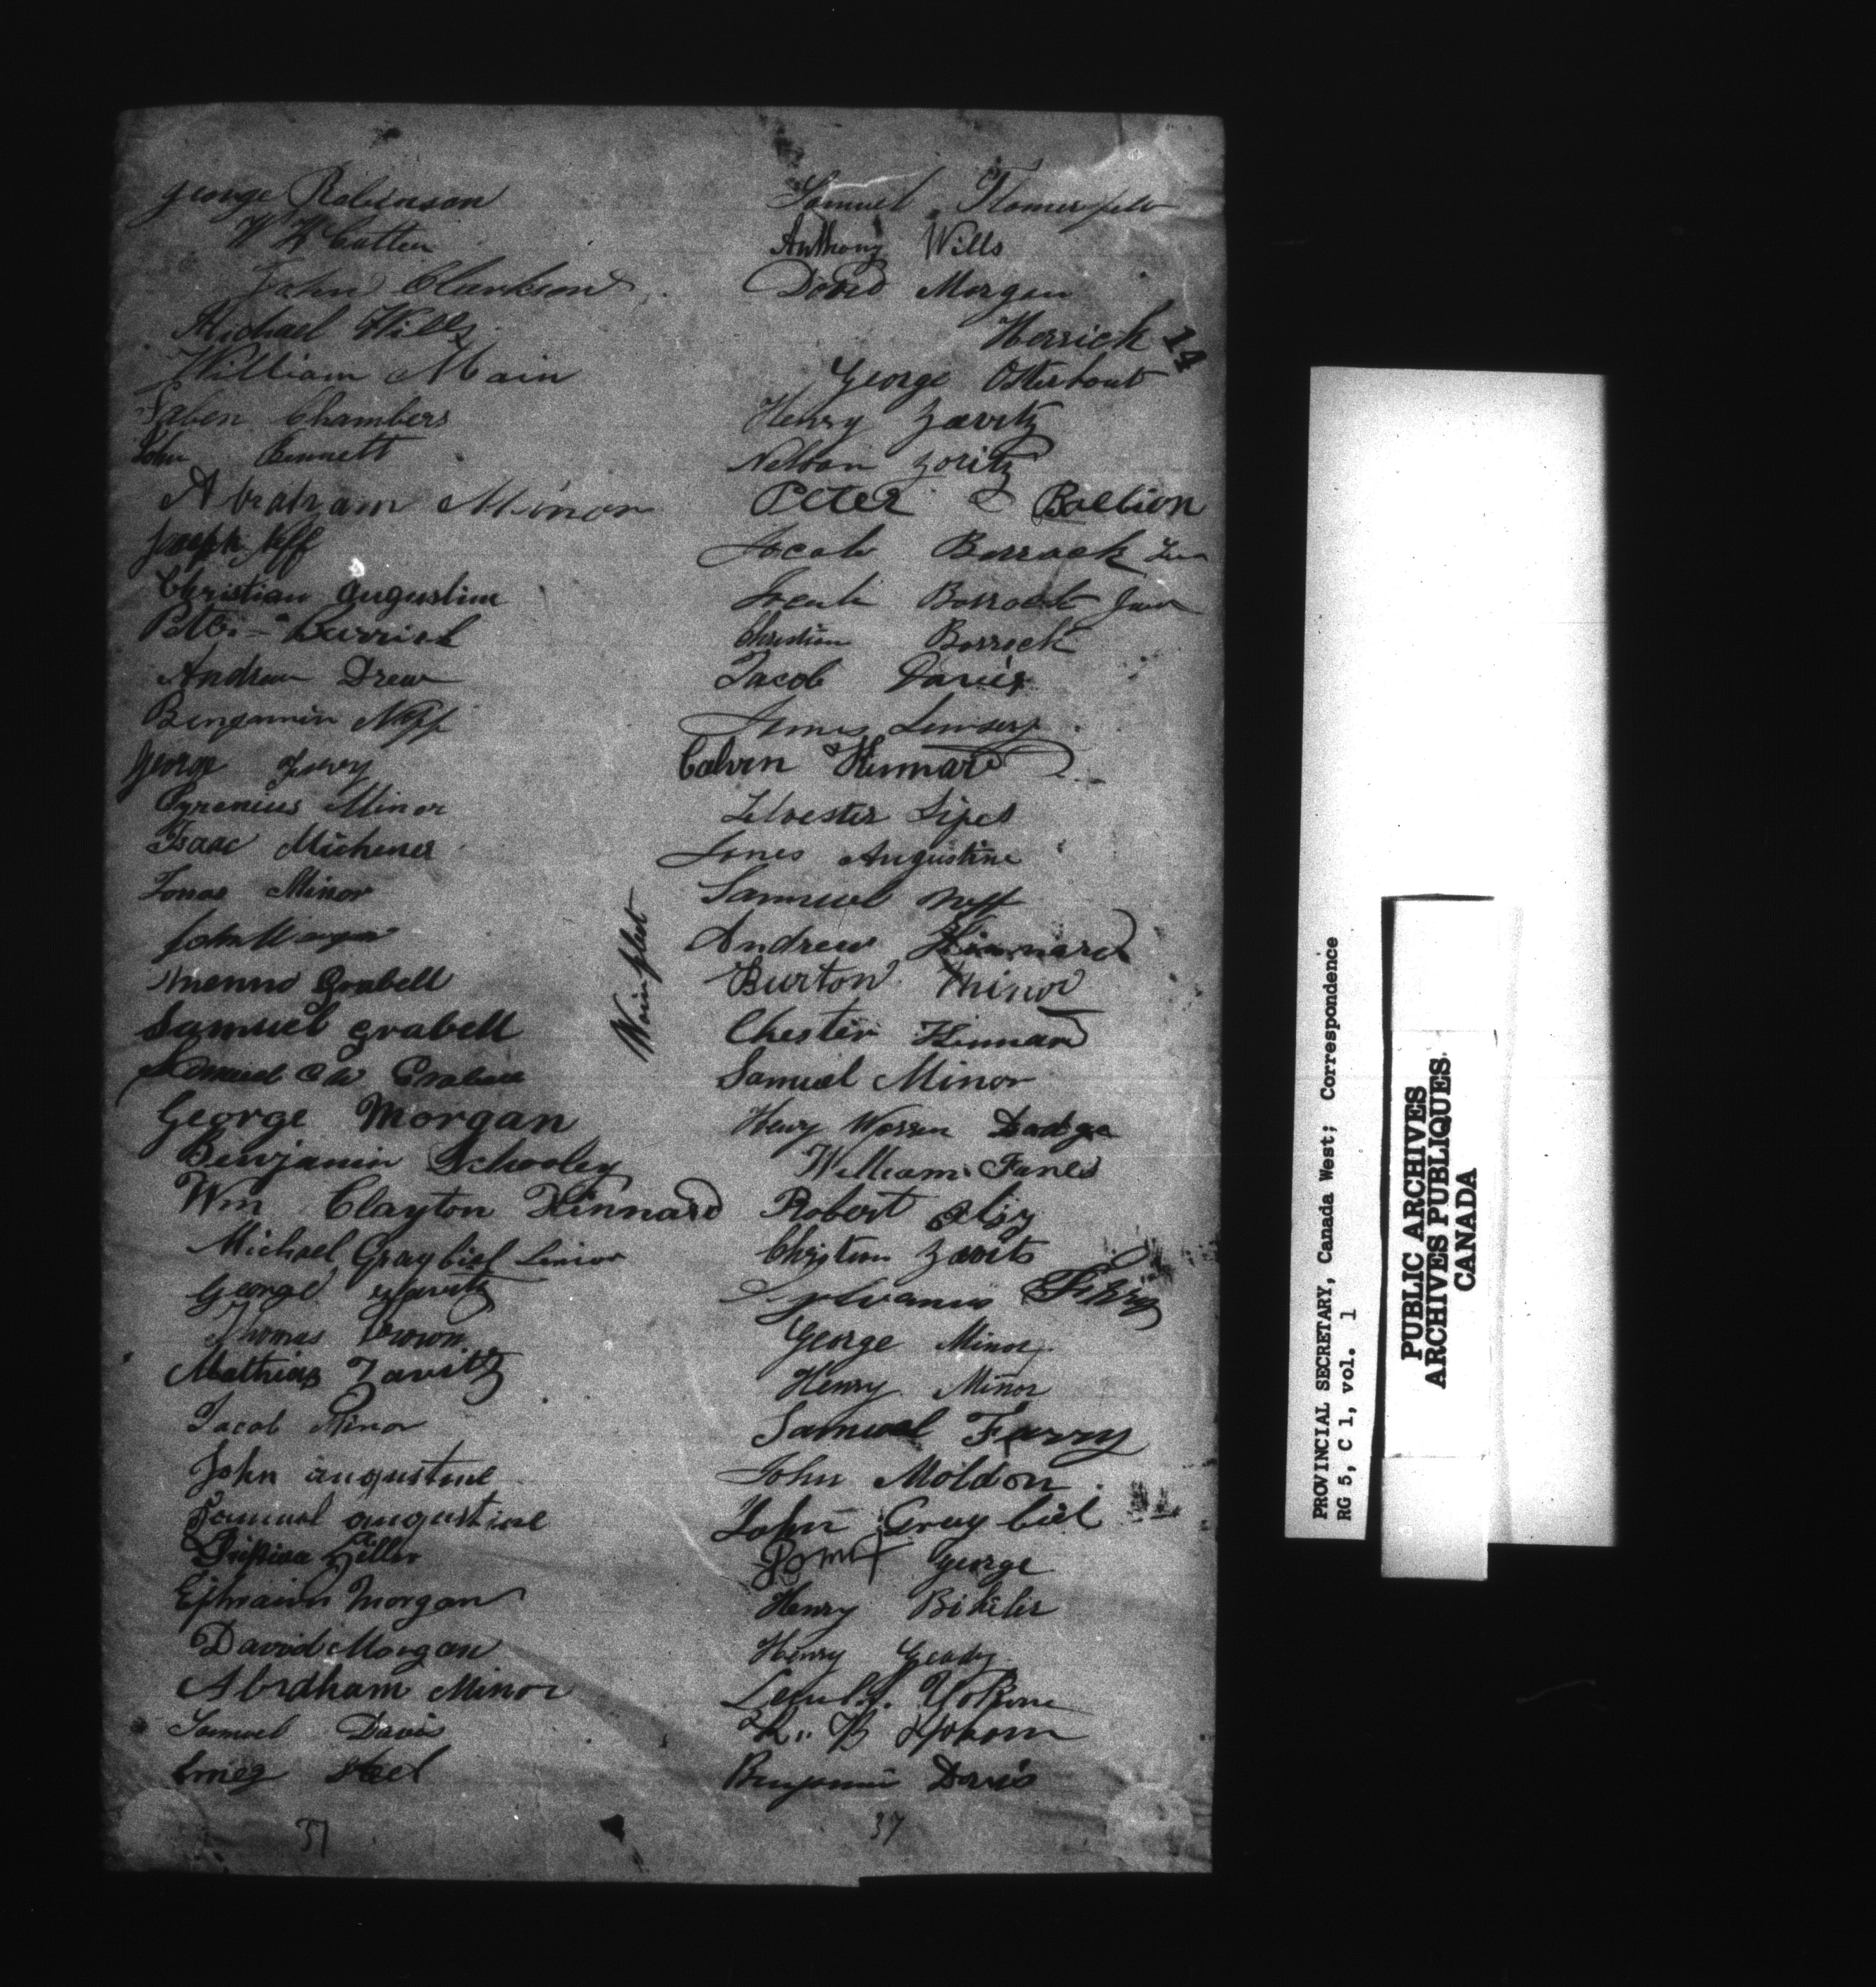 George Robinson
W H Cutten
John Clarkson
Michael Wills
William Main
Chambers
John Bennett
Abraham Minor
Joseph Neff
Christian Augustine
Peter Burrick
Andrew Drew
Benjamin Neff
George
Cyrenius Minor
Isaac Michener
Jonas Minor
John
Grabell
Samuel Grabell
Samuel
George Morgan
Benjamin Schooley
Wm Clayton Hinnard
Michael Graybiel Senior
George Zavitz
Thomas Brown
Mathias Zavitz
Jacob Minor
John augustine
Samuel augustine
Ephraim Morgan
David Morgan
Abraham Minor
Samuel Davis
Steel
37
Wainfleet
Samuel
Anthony Wills
David Morgan
Herrick
14
George Osterhout
Henry Zavitz
Nelson Zavitz
Peter
Jacob Barrack
Jacob Barrack Jun
Christian Barrick
Jacob Davis
James
Calvin Hinnard
Silvester Sipes
Jones Augustine
Samuel Neff
Andrew Hinnard
Burton Minor
Chester Hinnard
Samuel Minor
Henry Warren Dodge
William
Robert
Christian Zavits
Sylvanus
George Minor
Henry Minor
Samuel Farry
John Moldon
John Graybiel
George
Henry Bikeler
Henry
Lemuel
H. B
Benjamin Davis
37
PROVINCIAL SECRETARY, Canada West; Correspondence
RG 5, C 1, vol. 1
PUBLIC ARCHIVES
ARCHIVES PUBLIQUES
CANADA